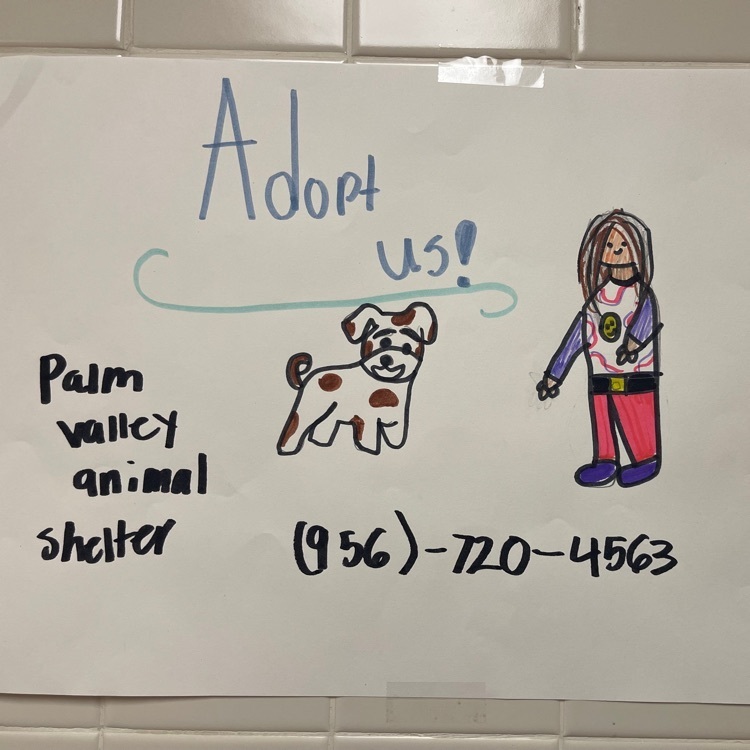 Adopt
us!
Palm
valley
animal
shelter
(956)-720-4563